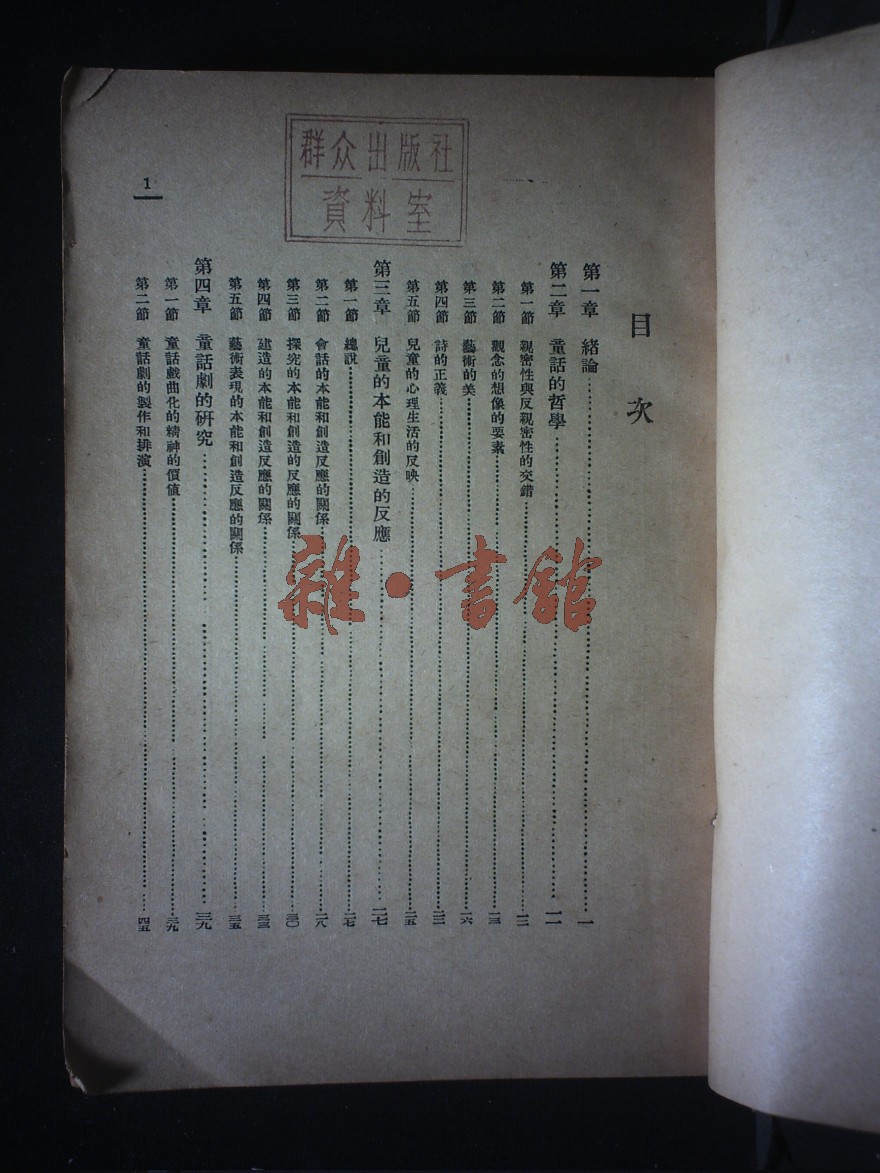 群众出版社
資料室
1
目次
第一章 緒論 一
第二章 童話的哲學 一一
第一節 親密性與反親密性的交錯 一二
第二節 觀念的想像的要素 一三
第三節 藝術的美 一六
第四節 詩的正義
第五節 兒童的心理生活的反映 二五
第三章 兒童的本能和創造的反應 二七
第一節 總說 二七
第二節 會話的本能和創造反應的關係 二八
第三節 探究的本能和創造的反應的關係 三〇
第四節 建造的本能和創造反應的關係 三三
第五節 藝術表現的本能和創造反應的關係 三五
第四章 童話劇的研究 三九
第一節 童話戲曲化的精神的價値 三九
第二節 童話劇的製作和排演 四五
雜·書館